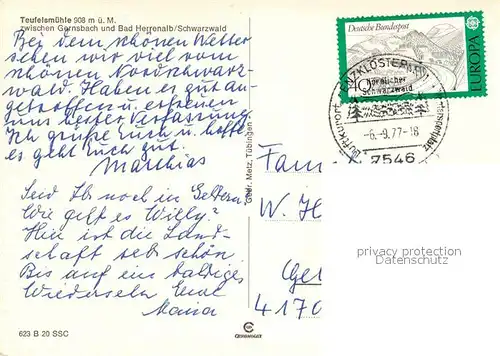 Teufelsmühle 908 m ü. M.
zwischen Gernsbach und Bad Herrenalb/Schwarzwald
Bei dem schönen Wetter
sehen wir viel vom
schönen Nordschwarz-
wald. Haben es gut an-
getroffen u. erfreuen
uns bester Verfassung.
Ich grüße Euch u. hoffe
es geht Euch gut.
Matthias
Seid Ihr noch in Geldern?
Wie geht es Willy?
Hier ist die Land-
schaft sehr schön.
Bis auf ein baldiges
Wiedersehn Eure
Maria
623 B 20 SSC
Gebr. Metz, Tübingen
Deutsche Bundespost
EUROPA
ENZKLÖSTERLE
Nördlicher
Schwarzwald
Luftkurort
-6.-9.77-18
7546
Fam
W. H
Gel
4170
privacy protection
Datenschutz